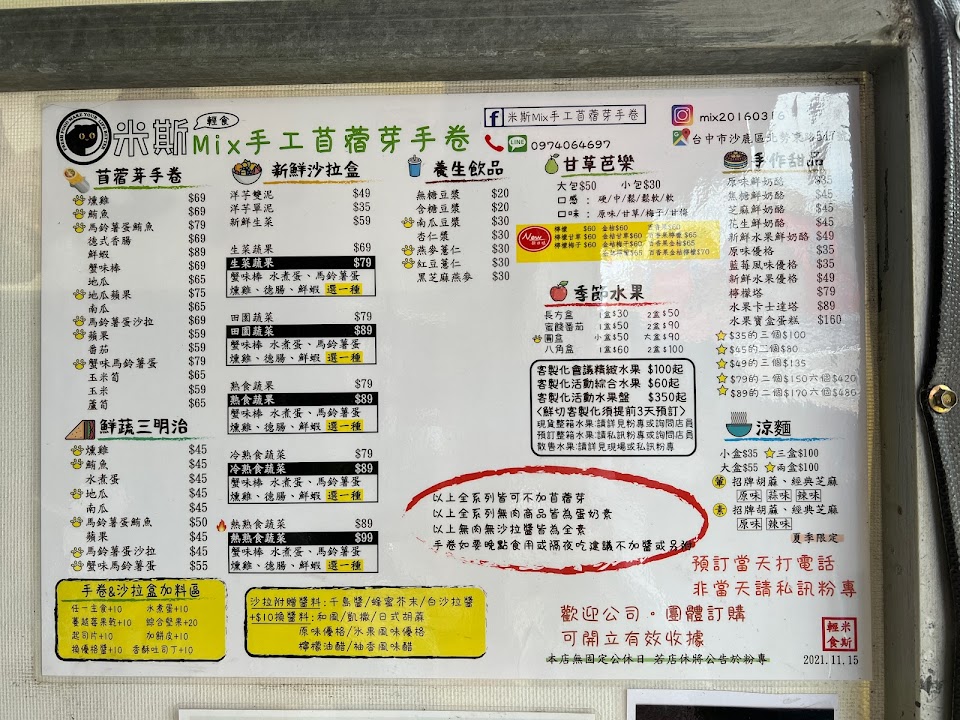 米斯 輕食
Mix手工苜蓿芽手卷
米斯Mix手工苜蓿芽手卷
LINE 0974064697
mix20160316
台中市沙鹿區北勢東路517號
苜蓿芽手卷
燻雞 $69
鮪魚 $69
馬鈴薯蛋鮪魚 $79
德式香腸 $69
鮮蝦 $89
蟹味棒 $69
地瓜 $65
地瓜蘋果 $75
南瓜 $65
馬鈴薯蛋沙拉 $69
蘋果 $59
番茄 $59
蟹味馬鈴薯蛋 $79
玉米筍 $65
玉米 $59
蘆筍 $65
鮮蔬三明治
燻雞 $45
鮪魚 $45
水煮蛋 $45
地瓜 $45
南瓜 $45
馬鈴薯蛋鮪魚 $50
蘋果 $45
馬鈴薯蛋沙拉 $45
蟹味馬鈴薯蛋 $55
手卷&沙拉盒加料區
任一主食+10 水煮蛋+10
蔓越莓果乾+10 綜合堅果+20
起司片+10 加餅皮+10
換優格醬+10 香酥吐司丁+10
新鮮沙拉盒
洋芋雙泥 $49
洋芋單泥 $35
新鮮生菜 $59
生菜蔬果 $69
生菜蔬果 $79
蟹味棒 水煮蛋、馬鈴薯蛋
燻雞、德腸、鮮蝦 選一種
田園蔬菜 $79
田園蔬菜 $89
蟹味棒 水煮蛋、馬鈴薯蛋
燻雞、德腸、鮮蝦 選一種
熟食蔬果 $79
熟食蔬果 $89
蟹味棒 水煮蛋、馬鈴薯蛋
燻雞、德腸、鮮蝦 選一種
冷熟食蔬菜 $79
冷熟食蔬菜 $89
蟹味棒 水煮蛋、馬鈴薯蛋
燻雞、德腸、鮮蝦 選一種
熱熟食蔬菜 $89
熱熟食蔬菜 $99
蟹味棒 水煮蛋、馬鈴薯蛋
燻雞、德腸、鮮蝦 選一種
沙拉附贈醬料:千島醬/蜂蜜芥末/白沙拉醬
+$10換醬料:和風/凱撒/日式胡蔴
原味優格/水果風味優格
檸檬油醋/柚香風味醋
養生飲品
無糖豆漿 $20
含糖豆漿 $20
南瓜豆漿 $30
杏仁漿 $30
燕麥薏仁 $30
紅豆薏仁 $30
黑芝麻燕麥 $30
甘草芭樂
大包$50 小包$30
口感 : 硬/中/鬆/鬆軟/軟
口味 : 原味/甘草/梅子/甘梅
New
檸檬 $60 金桔$60
檸檬甘草 $60 金桔甘草$60
檸檬梅子 $60 金桔梅子$60
季節水果
長方盒 1盒$30 2盒$50
蜜餞番茄 1盒$50 2盒$90
圓盒 小盒$50 大盒$90
八角盒 1盒$60 2盒$100
客製化會議精緻水果 $100起
客製化活動綜合水果 $60起
客製化活動水果盤 $350起
<鮮切客製化須提前3天預訂>
現貨整箱水果:請詳見粉專或詢問店員
預訂整箱水果:請私訊粉專或詢問店員
散售水果:請詳見現場或私訊粉專
以上全系列皆可不加苜蓿芽
以上全系列無肉商品皆為蛋奶素
以上無肉無沙拉醬皆為全素
手卷如要晚點食用或隔夜吃建議不加醬或另附
手作甜品
原味鮮奶酪 $35
焦糖鮮奶酪 $45
芝麻鮮奶酪 $45
花生鮮奶酪 $45
新鮮水果鮮奶酪 $49
原味優格 $35
藍莓風味優格 $35
新鮮水果優格 $49
檸檬塔 $79
水果卡士達塔 $89
水果寶盒蛋糕 $160
$35的三個$100
$45的二個$80
$49的三個$135
$79的二個$150六個$420
$89的二個$170六個$486
涼麵
小盒$35 三盒$100
大盒$55 兩盒$100
葷 招牌胡蔴、經典芝麻
原味 蒜味 辣味
素 招牌胡蔴、經典芝麻
原味 辣味
夏季限定
預訂當天打電話
非當天請私訊粉專
歡迎公司。團體訂購
可開立有效收據
本店無固定公休日 若店休將公告於粉專
輕食米斯
2021.11.15